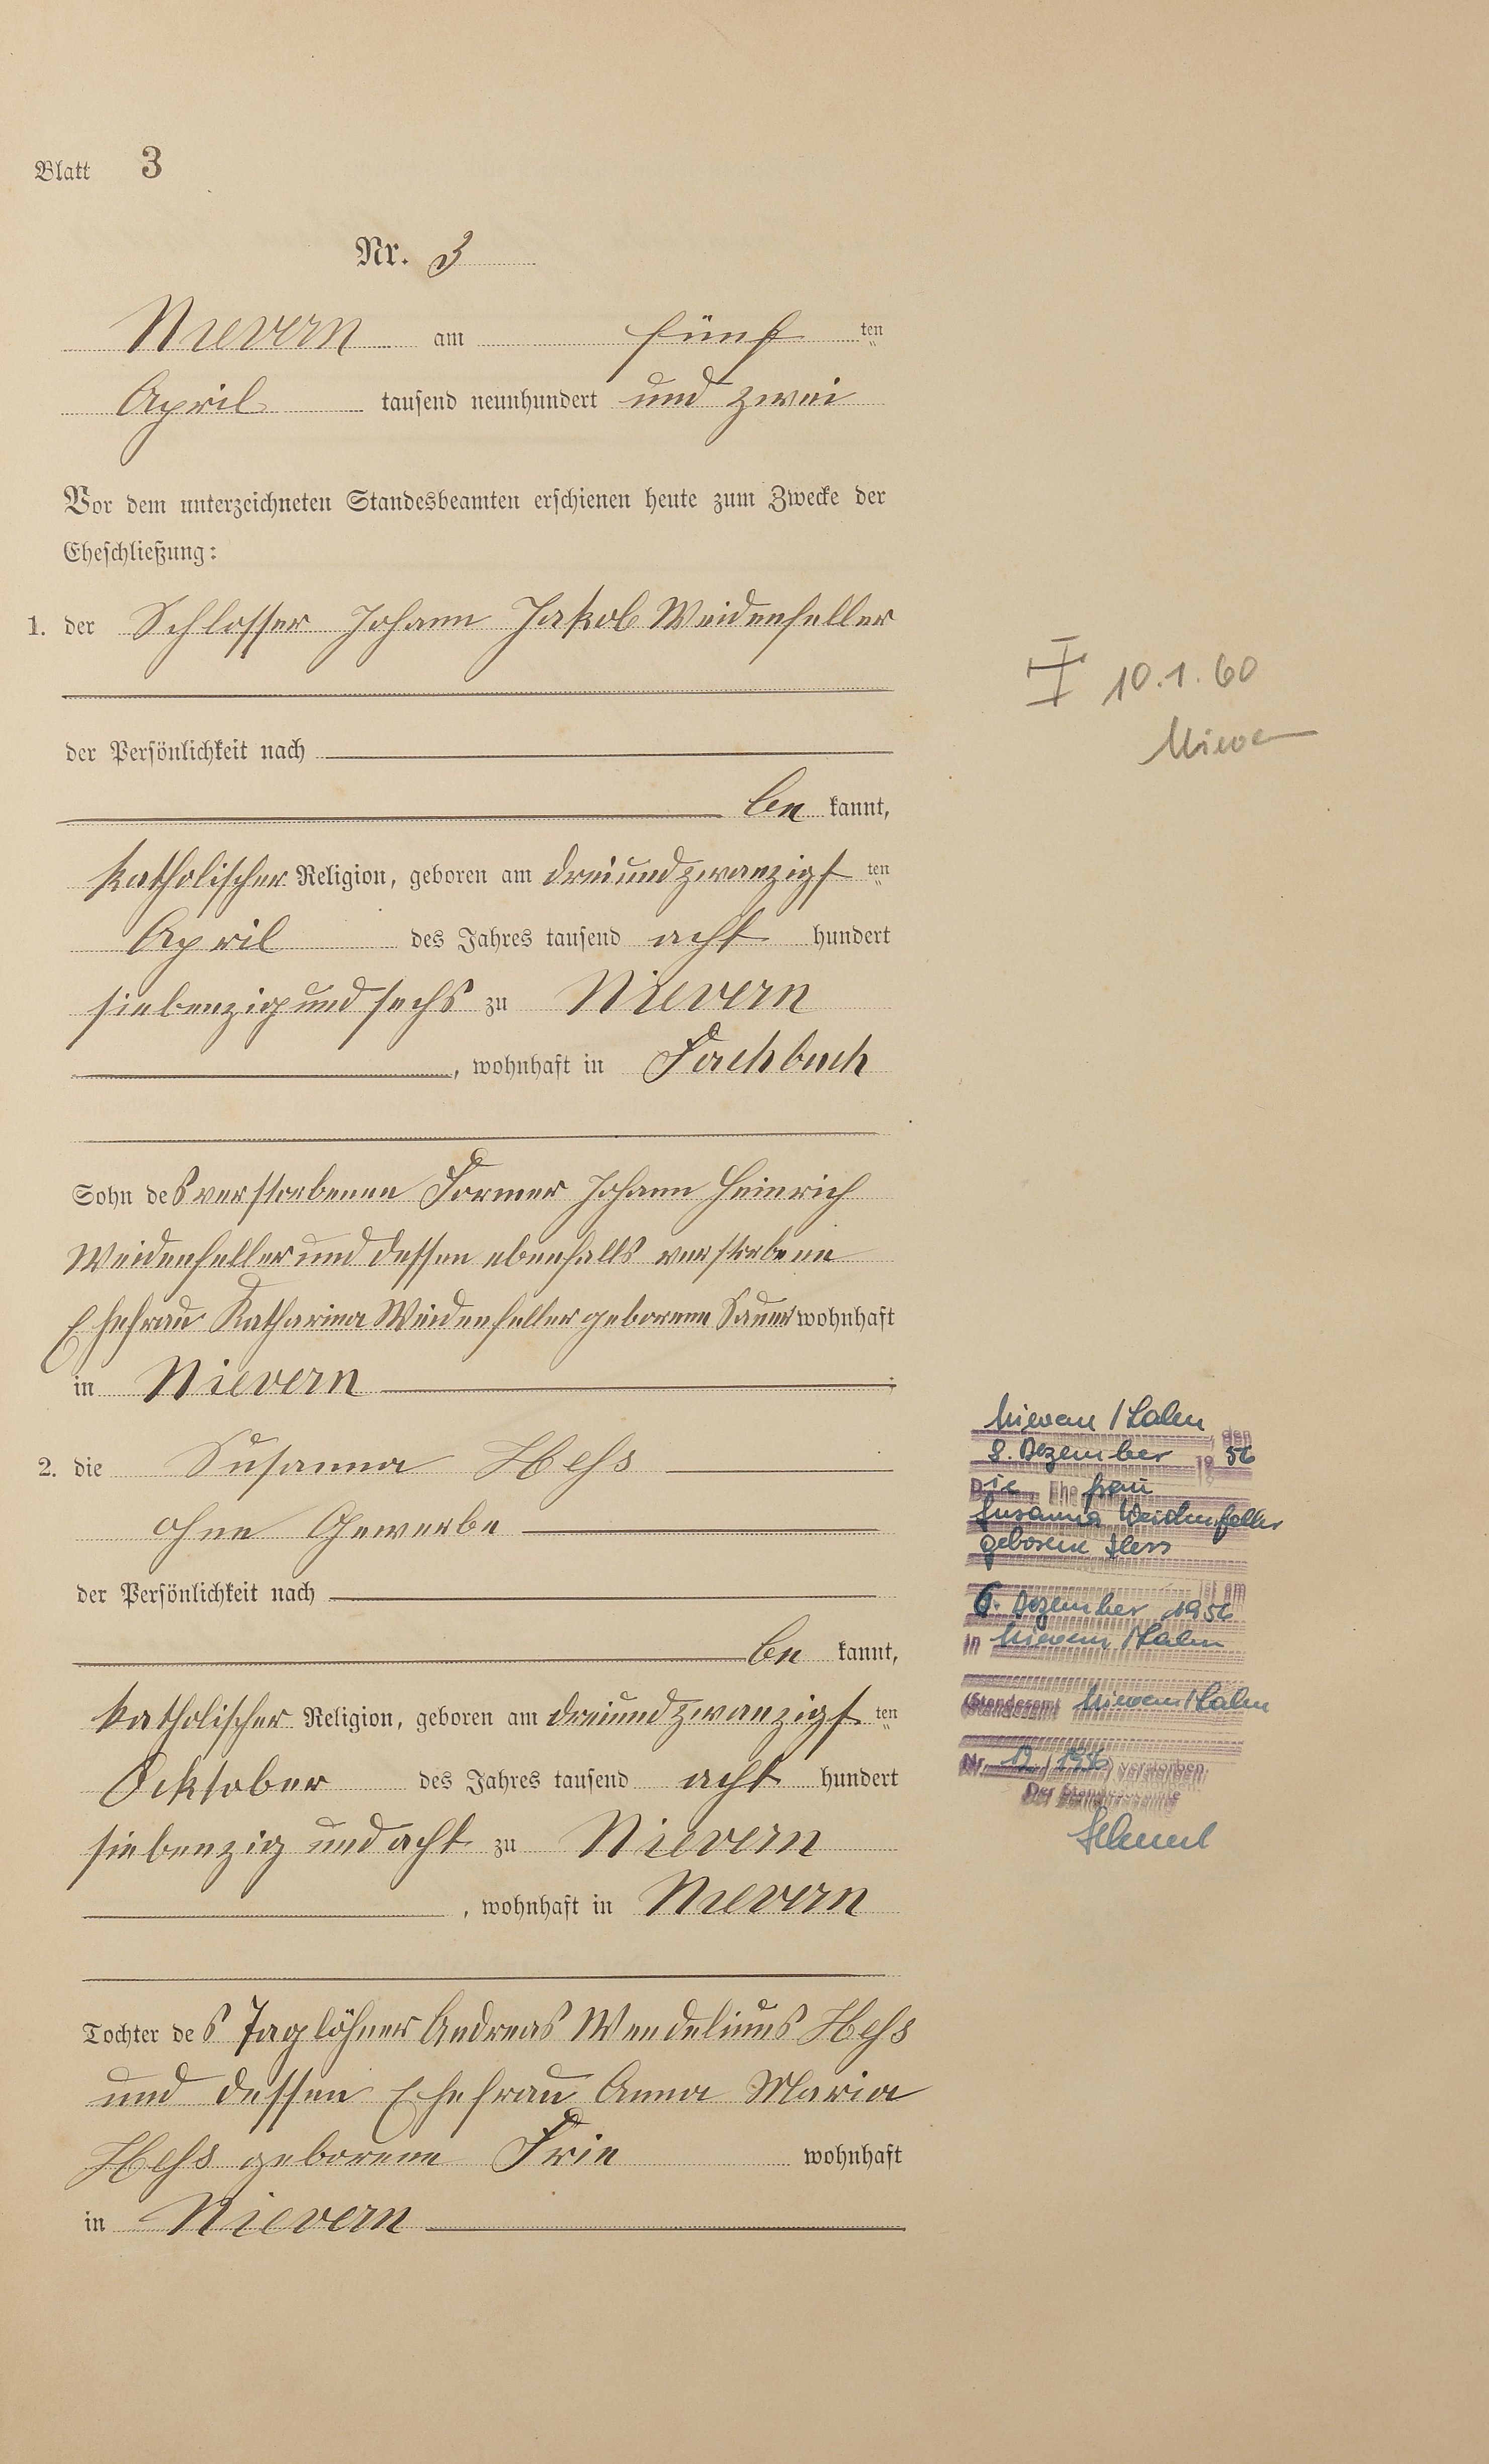 Blatt 3
Nr. 3
Nievern am fünf ten
April tausend neunhundert und zwei
Vor dem unterzeichneten Standesbeamten erschienen heute zum Zwecke der
Eheschließung:
1. der Schlosser Johann Jakob Weidenfeller
der Persönlichkeit nach
be kannt,
katholischer Religion, geboren am dreiundzwanzigsten
April des Jahres tausend acht hundert
siebenzig und sechs zu Nievern
, wohnhaft in Fachbach
Sohn des verstorbenen Former Johann Heinrich
Weidenfeller und dessen ebenfalls verstorbene
Ehefrau Katharina Weidenfeller geborene Sauer wohnhaft
in Nievern
2. die Susanna Hess
ohne Gewerbe
der Persönlichkeit nach
be kannt,
katholischer Religion, geboren am dreiundzwanzigsten
Ocktober des Jahres tausend acht hundert
siebenzig und acht zu Nievern
, wohnhaft in Nievern
Tochter des Taglöhner Andreas Wendelinus Hess
und dessen Ehefrau Anna Maria
Hess geborene Frin wohnhaft
in Nievern
10.1.60
Nievern/Lahn, den
8. Dezember 1956
Die Ehefrau
Susanna Weidenfeller
geborene Hess
ist am
6. Dezember 1956
in Nievern/Lahn
(Standesamt Nievern/Lahn
Nr. 12/1956) verstorben.
Der Standesbeamte